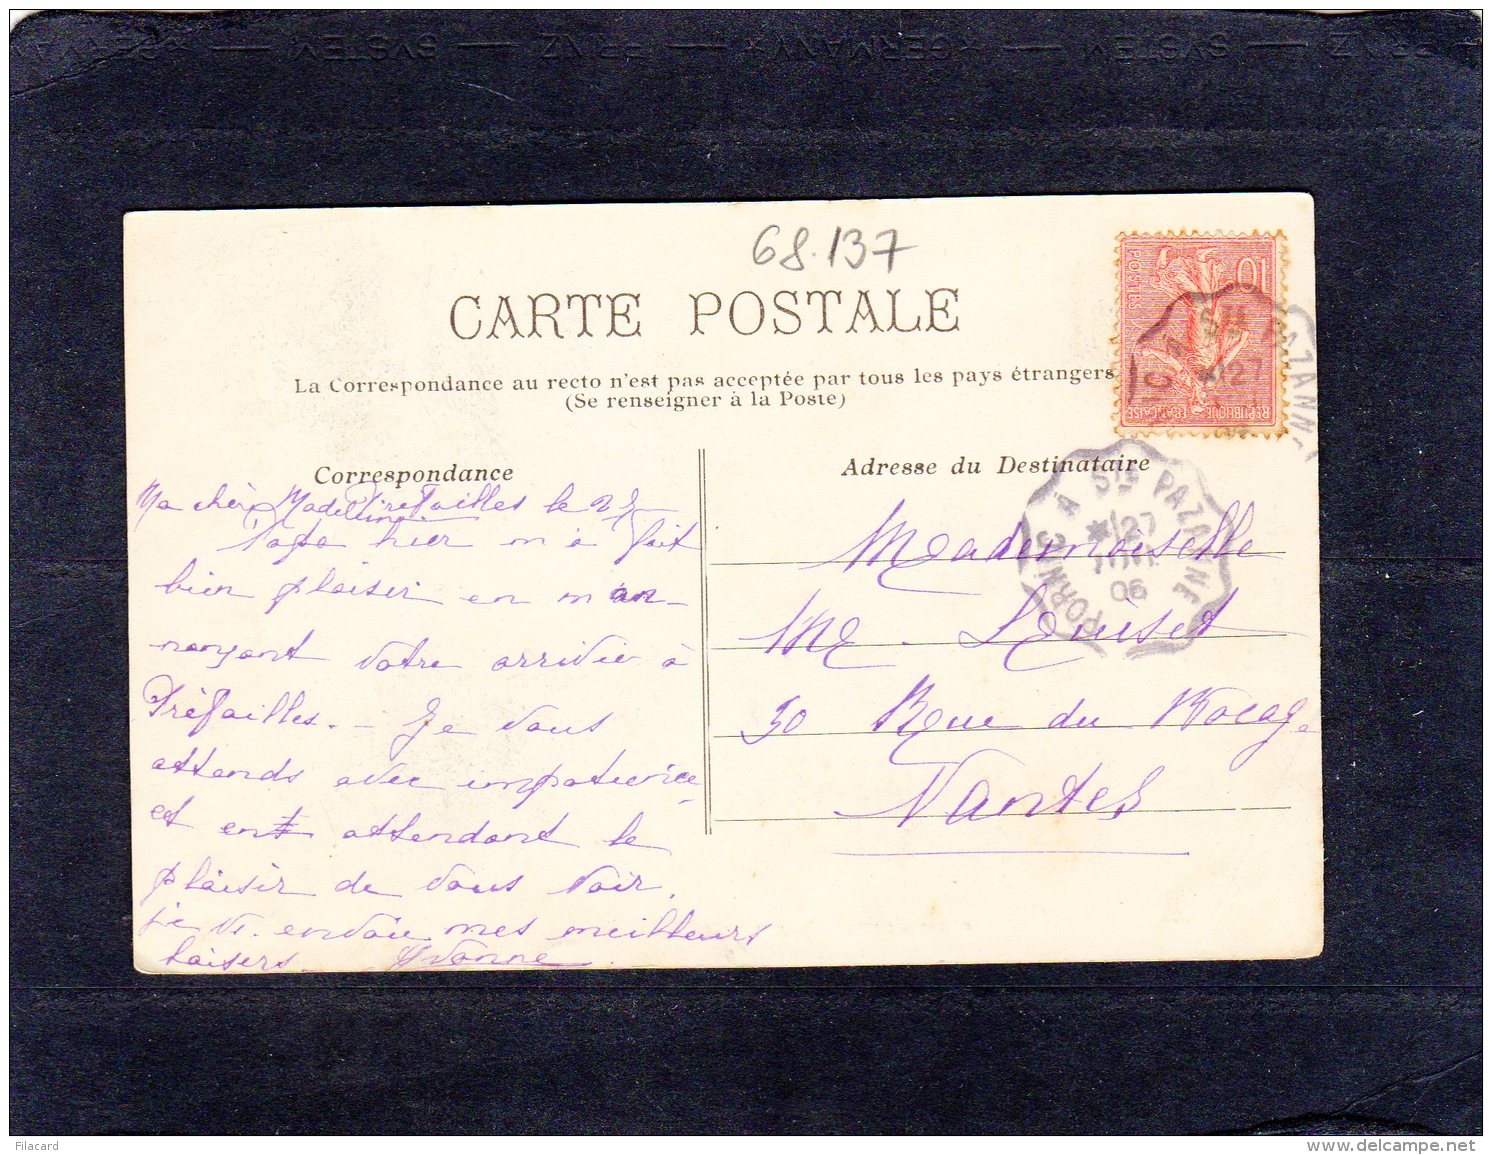 68.137
CARTE POSTALE
La Correspondance au recto n'est pas acceptée par tous les pays étrangers
(Se renseigner à la Poste)
Correspondance
Préfailles le 25
Ma chère Madeleine
Papa hier m'a fait
bien plaisir en m'an-
nonçant votre arrivée à
Préfailles. - Je vous
attends avec impatience
et en attendant le
plaisir de vous voir,
je vs. envoie mes meilleurs
baisers. Yvonne
Adresse du Destinataire
Mademoiselle
Me. Louiset
30 Rue du Bocage
Nantes
10
POSTES
REPUBLIQUE FRANÇAISE
STE PAZANNE
27
PORNIC A STE PAZANNE
27
JUIL
06
SYSTEM PRYZ GERMANY SYSTEM
Filacard
www.delcampe.net